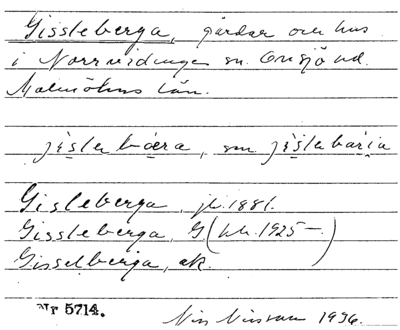 Gissleberga, gårdar och hus
i Norrvidinge sn. Onsjö hd.
Malmöhus län.
jìslebæra, sm jìslebæria
Gisleberga, jb. 1881.
Gissleberga, G (hk. 1925—.)
Gisselberga, ek.
Nr 5714.
Nils Nilsson 1936.